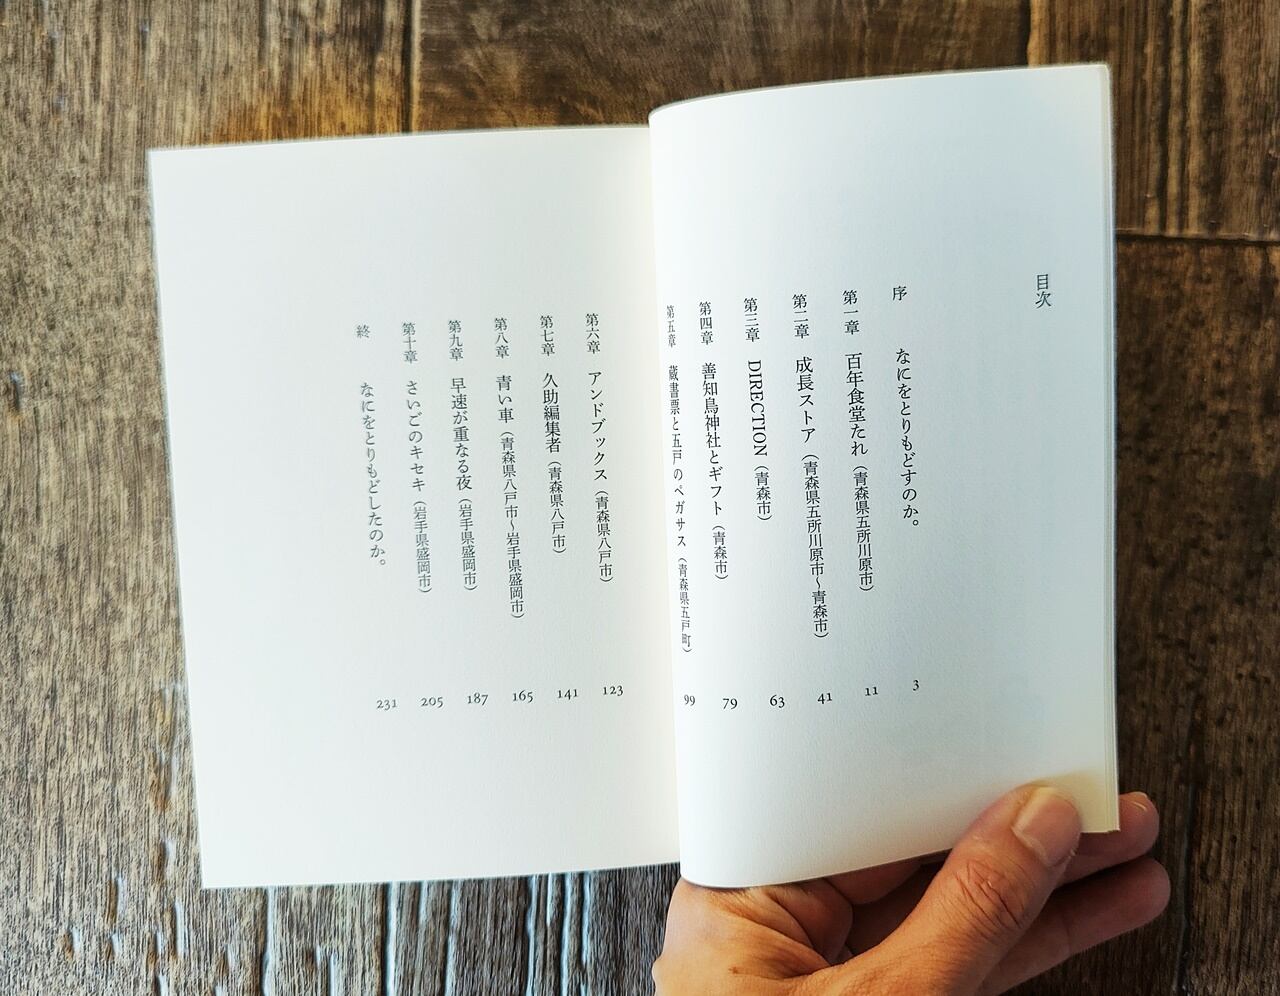 目次
序 なにをとりもどすのか。 3
第一章 百年食堂たれ（青森県五所川原市） 11
第二章 成長ストア（青森県五所川原市～青森市） 41
第三章 DIRECTION（青森市） 63
第四章 善知鳥神社とギフト（青森市） 79
第五章 蔵書票と五戸のペガサス（青森県五戸町） 99
第六章 アンドブックス（青森県八戸市） 123
第七章 久助編集者（青森県八戸市） 141
第八章 青い車（青森県八戸市～岩手県盛岡市） 165
第九章 早速が重なる夜（岩手県盛岡市） 187
第十章 さいごのキセキ（岩手県盛岡市） 205
終 なにをとりもどしたのか。 231